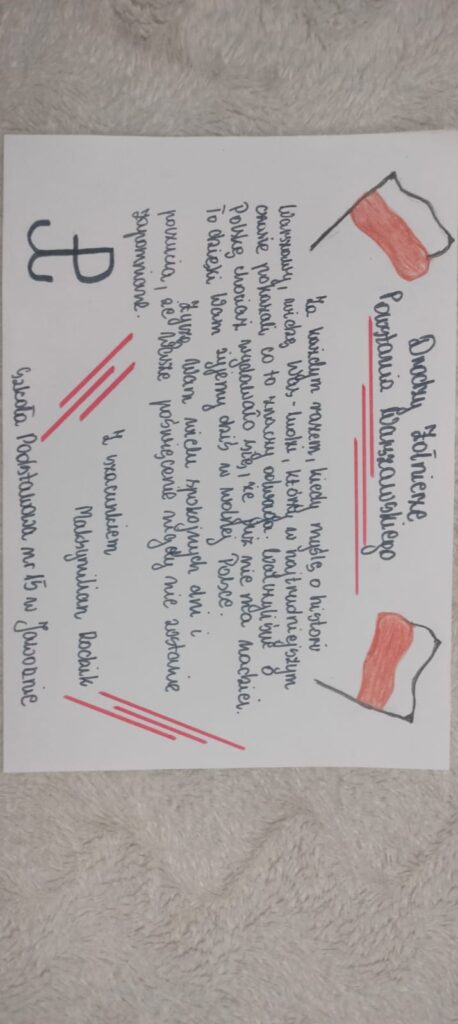 Drodzy Żołnierze
Powstania Warszawskiego
Za każdym razem, kiedy myślę o histori
Warszawy, widzę Was - ludzi, którzy w najtrudniejszym
czasie pokazali, co to znaczy odwaga. Walczyliście o
Polskę chociaż wydawało się, że już nie ma nadziei.
To dzięki Wam żyjemy dziś w wolnej Polsce.
Życzę Wam wielu spokojnych dni i
poczucia, że Wasze poświęcenie nigdy nie zostanie
zapomniane.
Z szacunkiem
Maksymilian
Szkoła Podstawowa nr 15 w Jaworznie